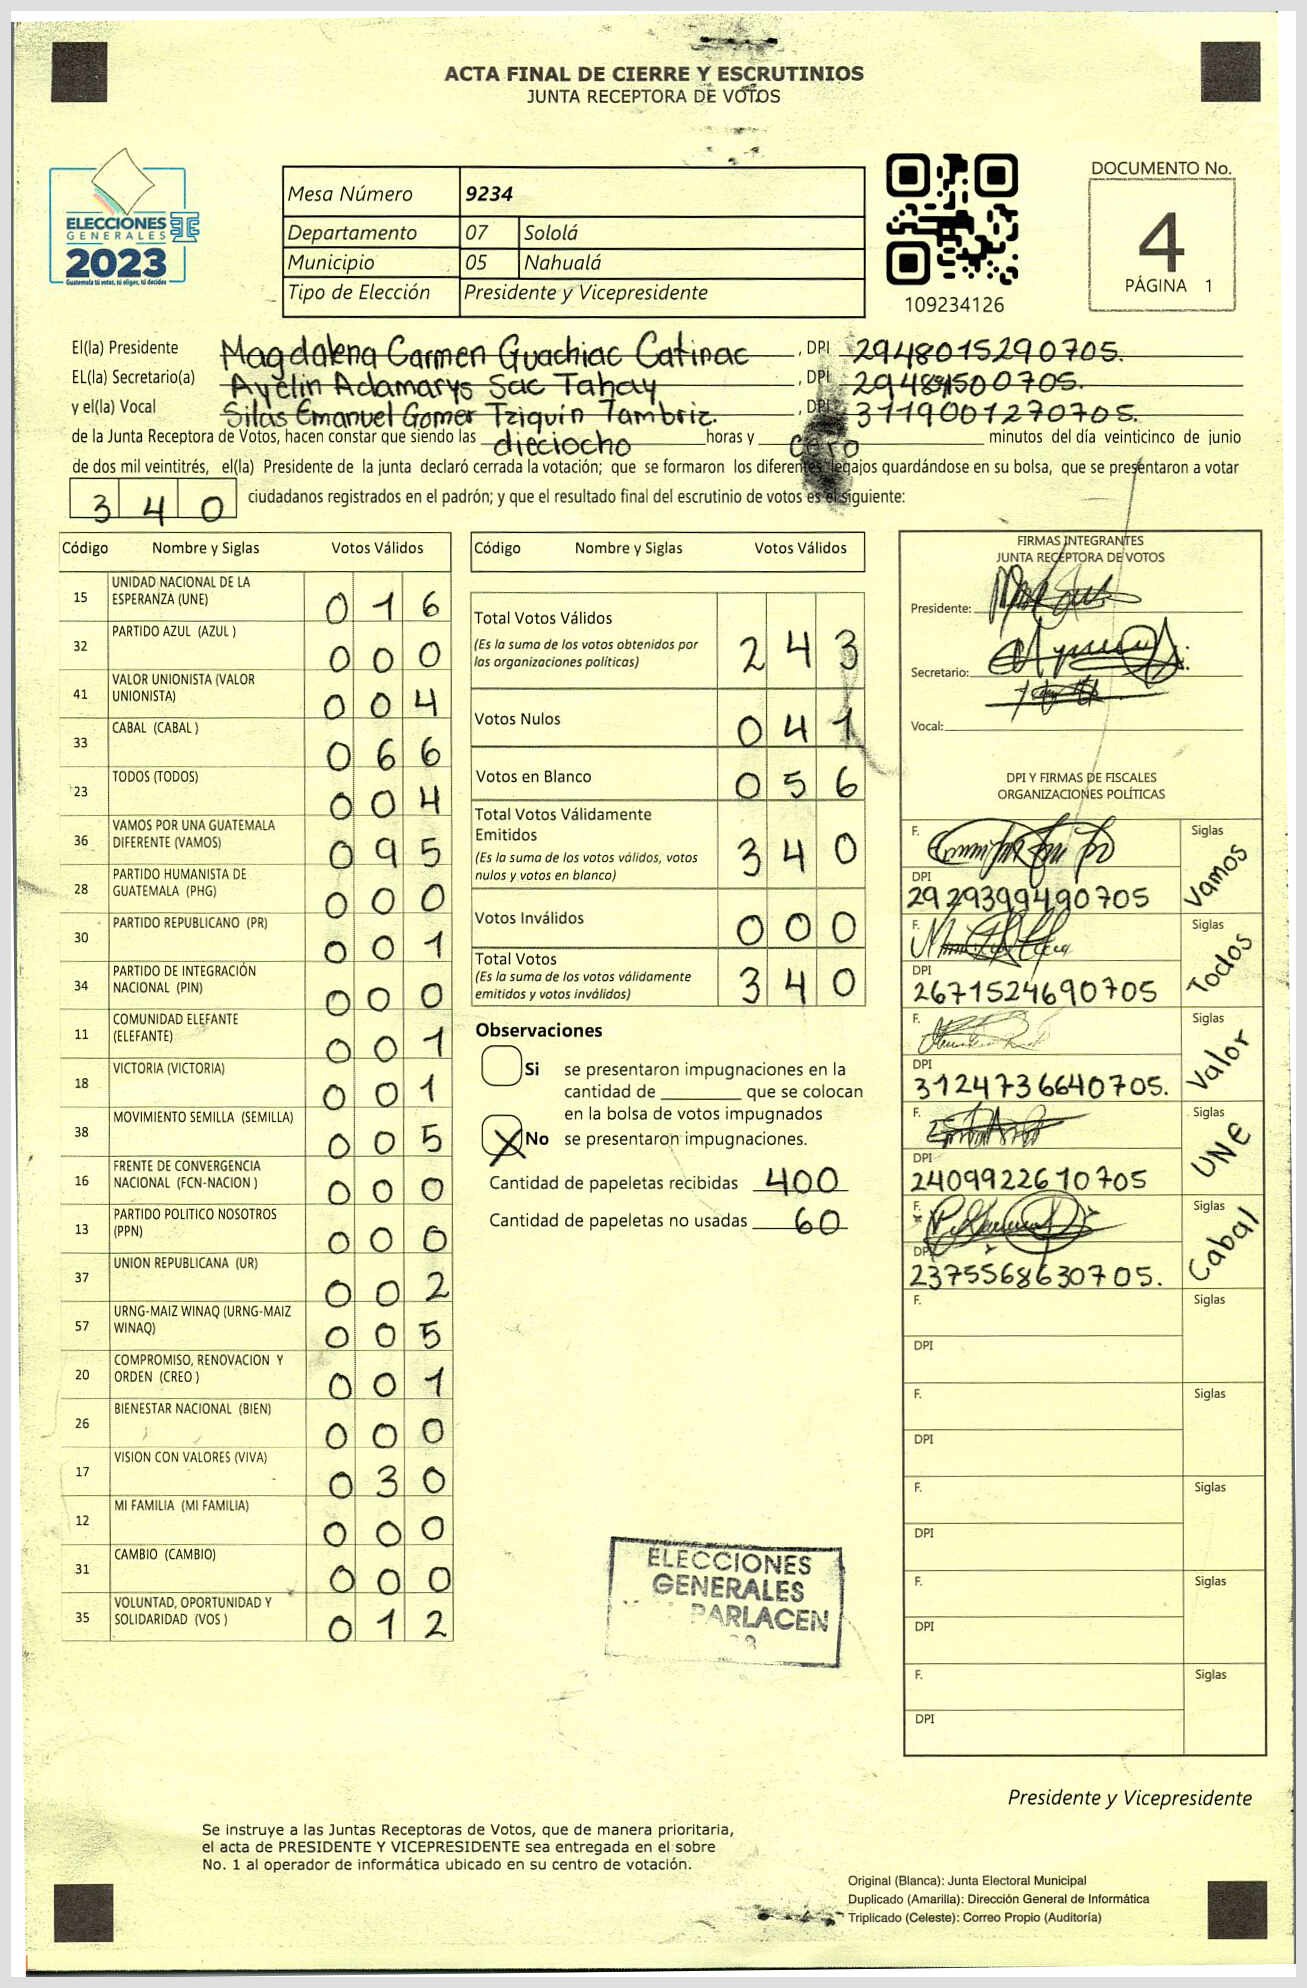 ACTA FINAL DE CIERRE Y ESCRUTINIOS
JUNTA RECEPTORA DE VOTOS
ELECCIONES
GENERALES
2023
Guatemala tú votas, tú eliges, tú decides
Mesa Número 9234
Departamento 07 Sololá
Municipio 05 Nahualá
Tipo de Elección Presidente y Vicepresidente
109234126
DOCUMENTO No.
4
PÁGINA 1
El(la) Presidente Magdalena Carmen Guachiac Catinac, DPI 2948015290705.
EL(la) Secretario(a) Ayelin Adamarys Sac Tahay, DPI
y el(la) Vocal Silas Emanuel Gomer Tziquín Tambriz., DPI 3119001270705.
de la Junta Receptora de Votos, hacen constar que siendo las dieciocho horas y cero minutos del día veinticinco de junio
de dos mil veintitrés, el(la) Presidente de la junta declaró cerrada la votación; que se formaron los diferentes legajos guardándose en su bolsa, que se presentaron a votar
3 4 0 ciudadanos registrados en el padrón; y que el resultado final del escrutinio de votos es el siguiente:
Código Nombre y Siglas Votos Válidos
15 UNIDAD NACIONAL DE LA ESPERANZA (UNE) 0 1 6
32 PARTIDO AZUL (AZUL ) 0 0 0
41 VALOR UNIONISTA (VALOR UNIONISTA) 0 0 4
33 CABAL (CABAL ) 0 6 6
23 TODOS (TODOS) 0 0 4
36 VAMOS POR UNA GUATEMALA DIFERENTE (VAMOS) 0 9 5
28 PARTIDO HUMANISTA DE GUATEMALA (PHG) 0 0 0
30 PARTIDO REPUBLICANO (PR) 0 0 1
34 PARTIDO DE INTEGRACIÓN NACIONAL (PIN) 0 0 0
11 COMUNIDAD ELEFANTE (ELEFANTE) 0 0 1
18 VICTORIA (VICTORIA) 0 0 1
38 MOVIMIENTO SEMILLA (SEMILLA) 0 0 5
16 FRENTE DE CONVERGENCIA NACIONAL (FCN-NACION ) 0 0 0
13 PARTIDO POLITICO NOSOTROS (PPN) 0 0 0
37 UNION REPUBLICANA (UR) 0 0 2
57 URNG-MAIZ WINAQ (URNG-MAIZ WINAQ) 0 0 5
20 COMPROMISO, RENOVACION Y ORDEN (CREO ) 0 0 1
26 BIENESTAR NACIONAL (BIEN) 0 0 0
17 VISION CON VALORES (VIVA) 0 3 0
12 MI FAMILIA (MI FAMILIA) 0 0 0
31 CAMBIO (CAMBIO) 0 0 0
35 VOLUNTAD, OPORTUNIDAD Y SOLIDARIDAD (VOS ) 0 1 2
Código Nombre y Siglas Votos Válidos
Total Votos Válidos 2 4 3
(Es la suma de los votos obtenidos por
las organizaciones políticas)
Votos Nulos 0 4 1
Votos en Blanco 0 5 6
Total Votos Válidamente
Emitidos 3 4 0
(Es la suma de los votos válidos, votos
nulos y votos en blanco)
Votos Inválidos 0 0 0
Total Votos 3 4 0
(Es la suma de los votos válidamente
emitidos y votos inválidos)
Observaciones
Si se presentaron impugnaciones en la
cantidad de ________ que se colocan
en la bolsa de votos impugnados
X No se presentaron impugnaciones.
Cantidad de papeletas recibidas 400
Cantidad de papeletas no usadas 60
ELECCIONES
GENERALES
PARLACEN
FIRMAS INTEGRANTES
JUNTA RECEPTORA DE VOTOS
Presidente:
Secretario:
Vocal:
DPI Y FIRMAS DE FISCALES
ORGANIZACIONES POLÍTICAS
F. Siglas Vamos
DPI 2929399490705
F. Siglas Todos
DPI 2671524690705
F. Siglas Valor
DPI 3124736640705.
F. Siglas UNE
DPI 2409922610705
F. Siglas Cabal
DPI 2375568630705.
F. Siglas
DPI
F. Siglas
DPI
F. Siglas
DPI
F. Siglas
DPI
F. Siglas
DPI
Presidente y Vicepresidente
Se instruye a las Juntas Receptoras de Votos, que de manera prioritaria,
el acta de PRESIDENTE Y VICEPRESIDENTE sea entregada en el sobre
No. 1 al operador de informática ubicado en su centro de votación.
Original (Blanca): Junta Electoral Municipal
Duplicado (Amarilla): Dirección General de Informática
Triplicado (Celeste): Correo Propio (Auditoría)